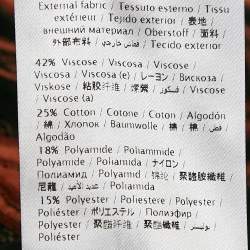 External fabric / Tessuto esterno / Tissu
extérieur / Tejido exterior / 表地 /
внешний материал / Oberstoff / 面料 /
外部布料 / قماش خارجي / Tecido exterior
42% Viscose / Viscosa / Viscose /
Viscosa / Viscosa (e) / レーヨン / Вискоза
/ Viskose / 粘胶纤维 / 嫘縈 / فسكوز /
Viscose / Viscose (a)
25% Cotton / Cotone / Coton / Algodón
/ 綿 / Хлопок / Baumwolle / 棉 / 棉 / قطن
Algodão
18% Polyamide / Poliammide /
Polyamide / Poliamida / ナイロン /
Полиамид / Polyamid / 锦纶 / 聚醯胺纖維 /
尼龍 / Poliamida
15% Polyester / Poliestere /
Polyester / Poliéster /
Poliéster / ポリエステル / Полиэфир /
Polyester / 聚酯纤维 / 聚酯纖維 / بوليستر
/ Poliéster